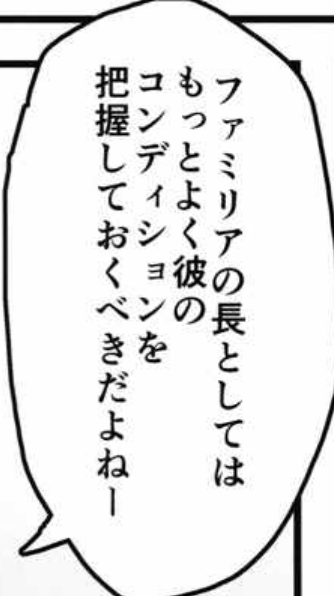 ファミリアの長としては
もっとよく彼の
コンディションを
把握しておくべきだよねー